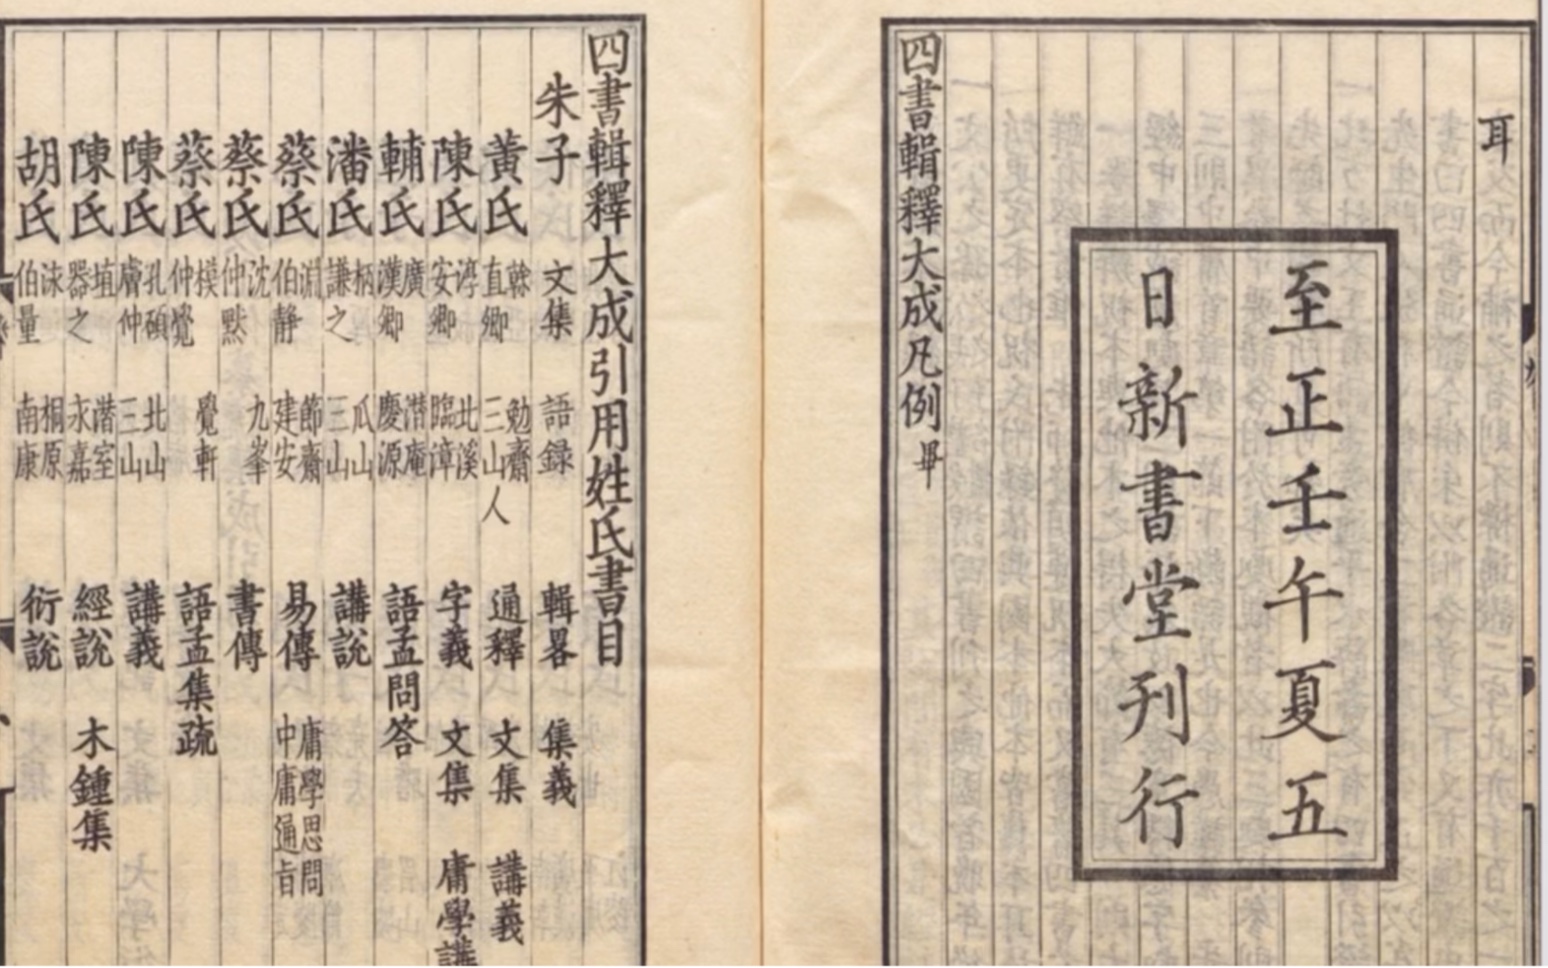 耳
至正壬午夏五
日新書堂刊行
四書輯釋大成凡例畢
四書輯釋大成引用姓氏書目
朱子 文集 語録 輯畧 集義
黃氏 榦直卿 勉齋三山人 通釋 文集 講義
陳氏 淳安卿 北溪臨漳 字義 文集 庸學講
輔氏 廣漢卿 潛庵慶源 語孟問答
潘氏 柄謙之 瓜山三山 講説
蔡氏 淵伯靜 節齋建安 易傳 庸學思問中庸通旨
蔡氏 沈仲黙 九峯 書傳
蔡氏 模仲覺 覺軒 語孟集疏
陳氏 孔碩膚仲 北山三山 講義
陳氏 埴器之 潛室永嘉 經説 木鍾集
胡氏 泳伯量 桐原南康 衍説